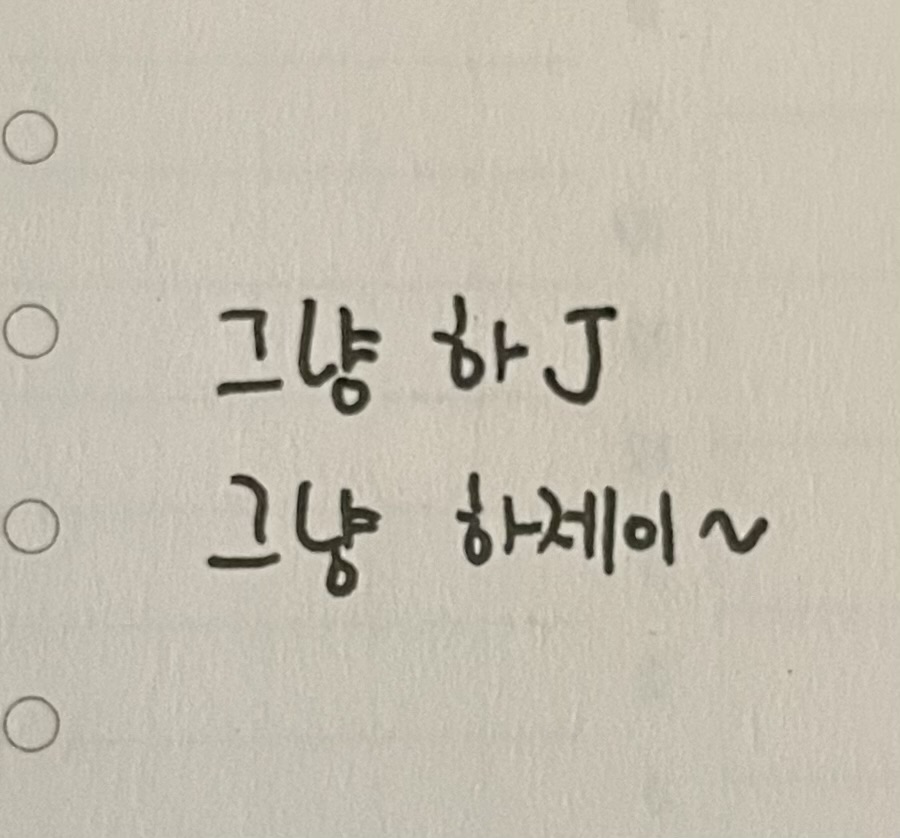 그냥 하J
그냥 하제이~